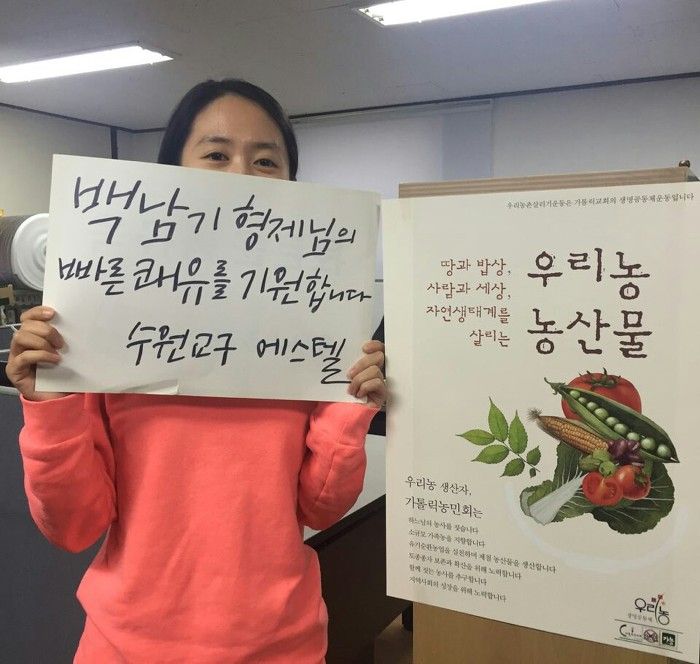 백남기 형제님의
빠른 쾌유를 기원합니다
수원교구 에스텔
우리농촌살리기운동은 가톨릭교회의 생명공동체운동입니다
땅과 밥상,
사람과 세상,
자연생태계를
살리는
우리농
농산물
우리농 생산자,
가톨릭농민회는
하느님의 농사를 짓습니다
소규모 가족농을 지향합니다
유기순환농업을 실천하며 제철 농산물을 생산합니다
토종종자 보존과 확산을 위해 노력합니다
함께 짓는 농사를 추구합니다
지역사회의 성장을 위해 노력합니다
우리농
생명공동체
가농